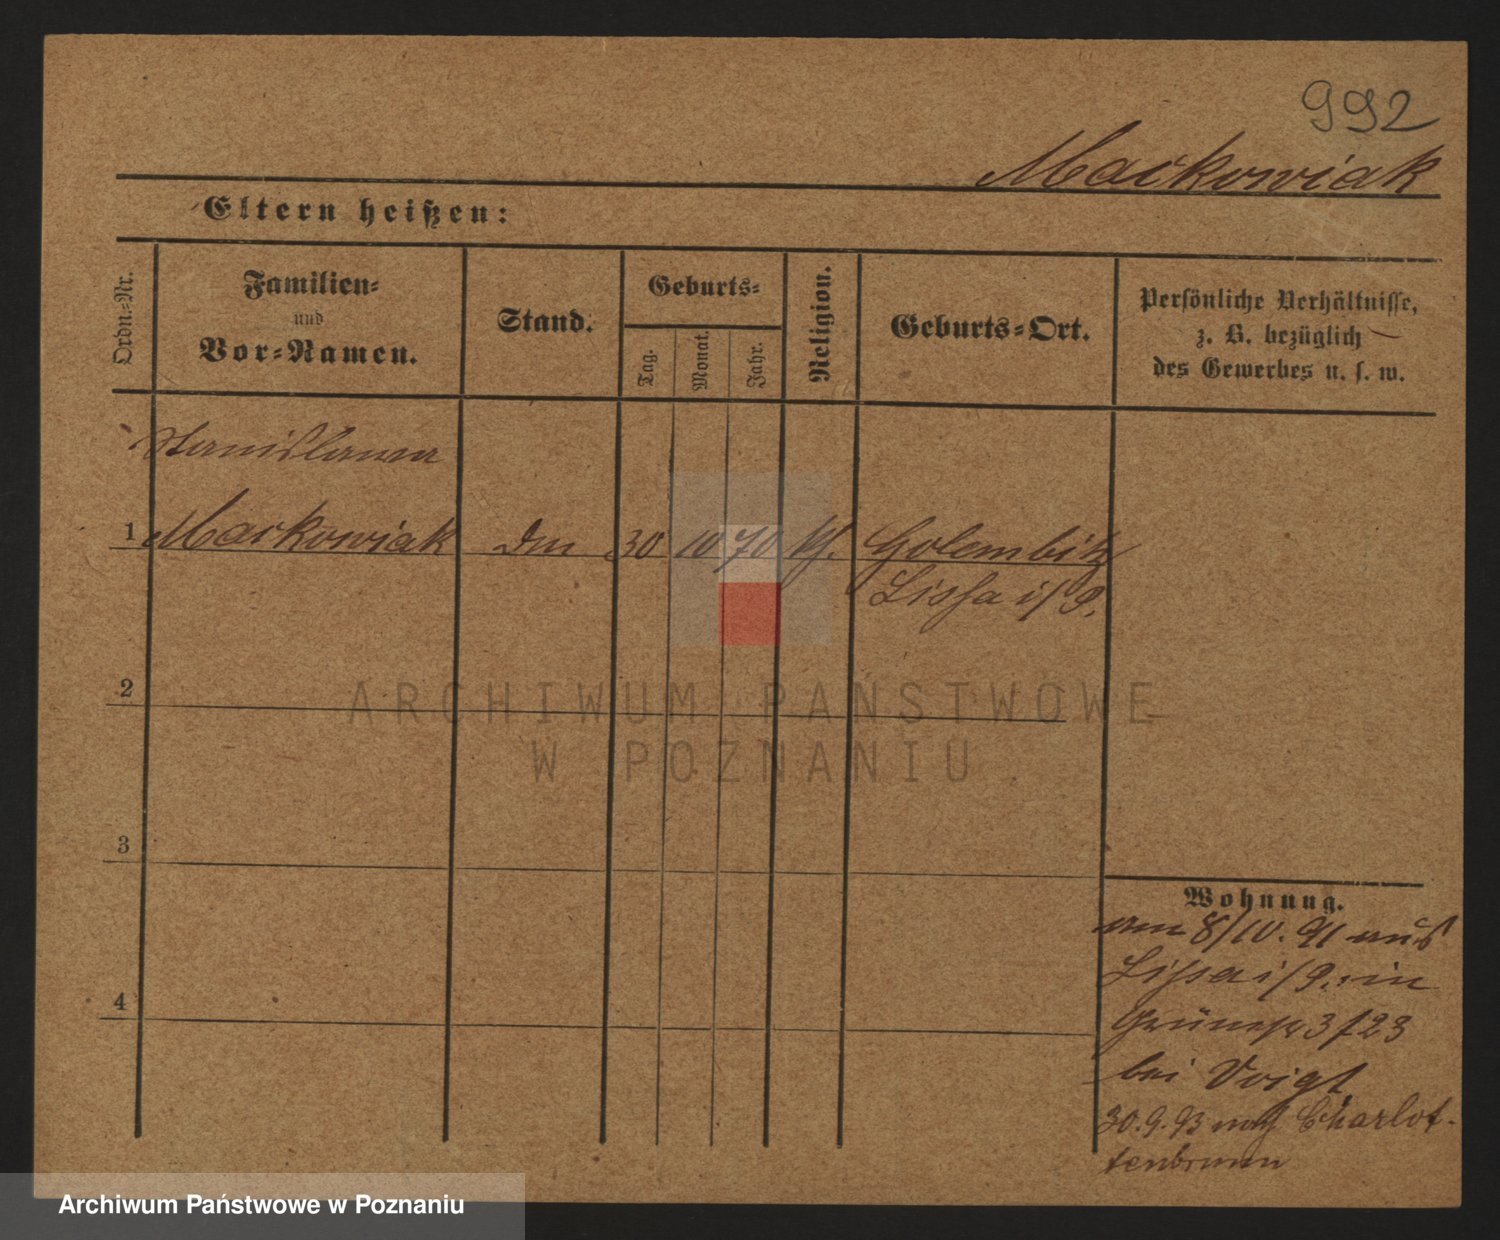 992
Mackowiak
Eltern heißen:
Ordn.-Nr.
Familien-
und
Vor-Namen.
Stand.
Geburts-
Tag.
Monat.
Jahr.
Religion.
Geburts-Ort.
Persönliche Verhältnisse,
z. B. bezüglich
des Gewerbes u. s. w.
Stanislawa
1 Mackowiak 30 10 70 Golembitz
Lissa i/P.
ARCHIWUM PAŃSTWOWE
W POZNANIU
2
3
4
Wohnung.
am 8/10. 91 aus
Lissa i/P. in
3/23
bei Voigt
30.9.93 nach Charlot-
tenbrunn
Archiwum Państwowe w Poznaniu